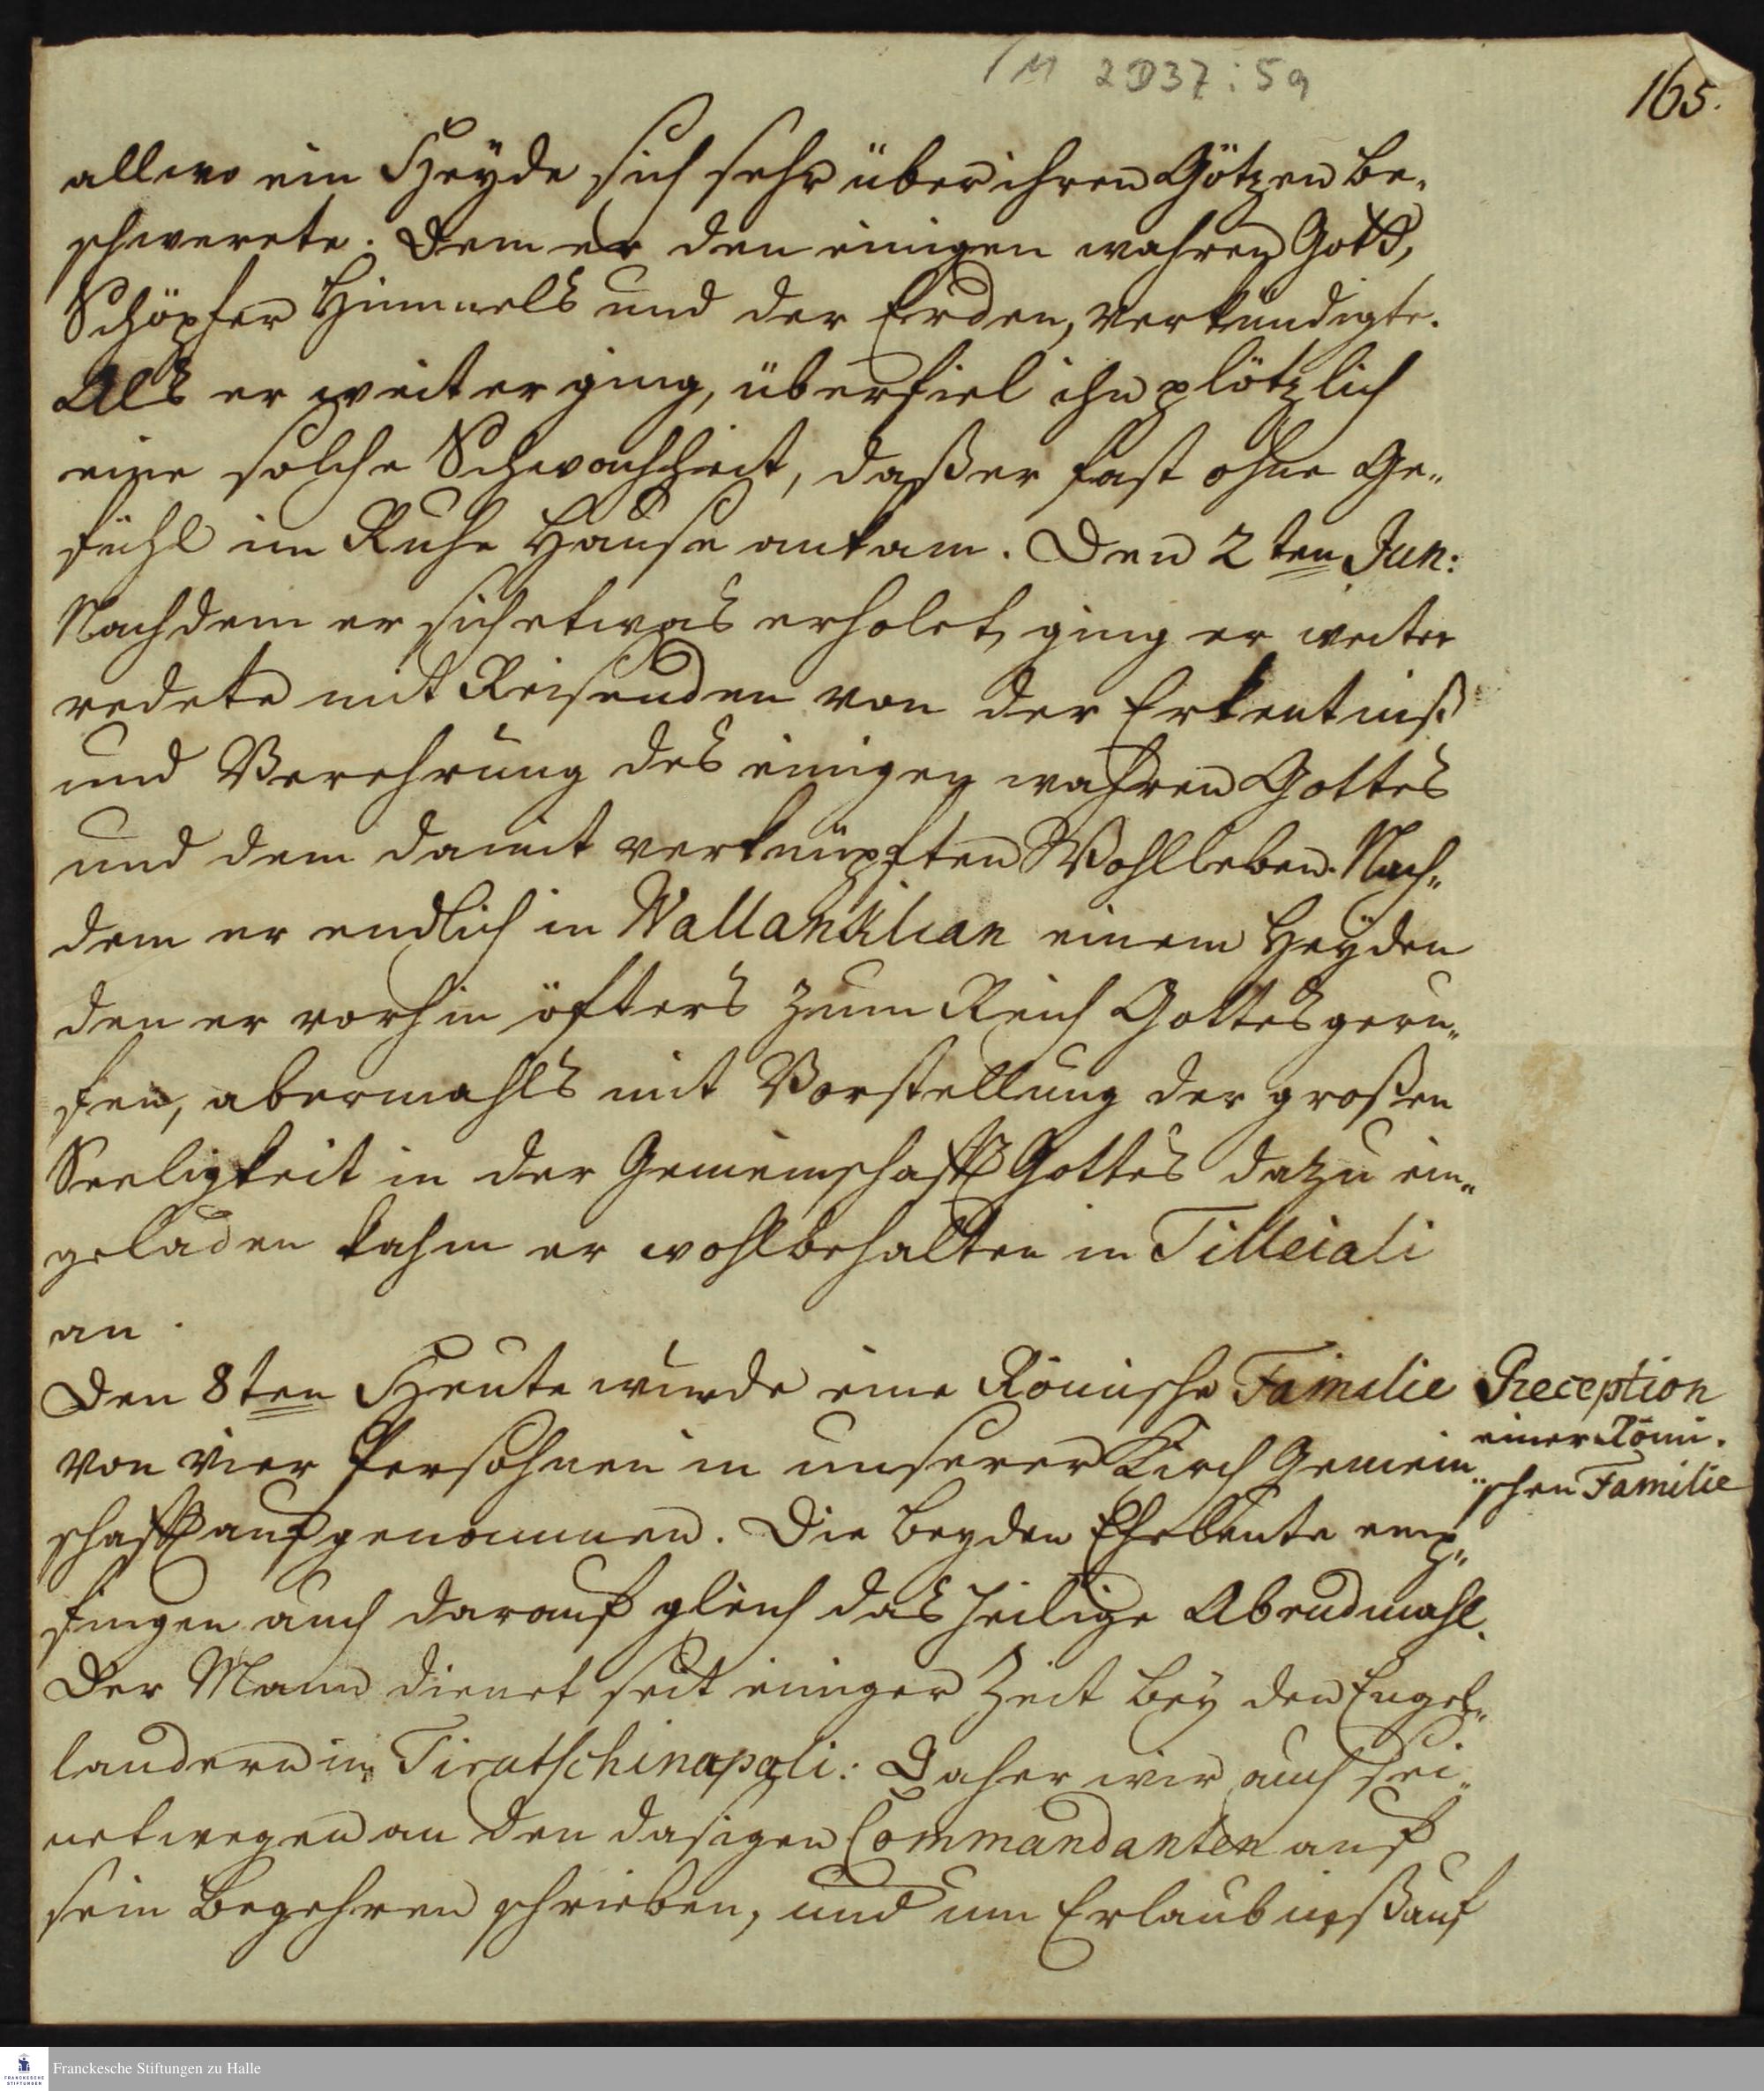 M 2 D37: 5a
165.
allwo ein Heyde sich sehr über ihren Götzen be-
schwerete. Dem er den einigen wahren Gott,
Schöpfer Himmels und der Erden, verkündigte.
Als er weiter ging, überfiel ihn plötzlich
eine solche Schwachheit, daß er fast ohne Ge-
fühl im Ruhe Hause ankam. Den 2ten Jun:
Nachdem er sich etwas erholet, ging er weiter
redete mit Reisenden von der Erkentniß
und Verehrung des einigen wahren Gottes
und dem damit verknüpften Wohlleben. Nach-
dem er endlich in Wallankilian einem Heyden
den er vorhin öfters zum Reich Gottes geru-
fen, abermahls mit Vorstellung der großen
Seeligkeit in der Gemeinschafft Gottes dazu ein-
geladen kahm er wohlbehalten in Tilleiali
an.
Den 8ten Heute wurde eine Römische Familie
von vier Persohnen in unserer Kirch Gemein-
schafft aufgenommen. Die beyden Eheleute emp-
fingen auch darauf gleich das heilige Abendmahl.
Der Mann dienet seit einiger Zeit bey den Engel-
landern in Tirutschinapali: Daher wir auch sei-
netwegen an den dasigen Commandanten auf
sein Begehren schrieben, und um Erlaubniß auf
Reception
einer Römi-
schen Familie
Franckesche Stiftungen zu Halle
FRANCKESCHE
STIFTUNGEN